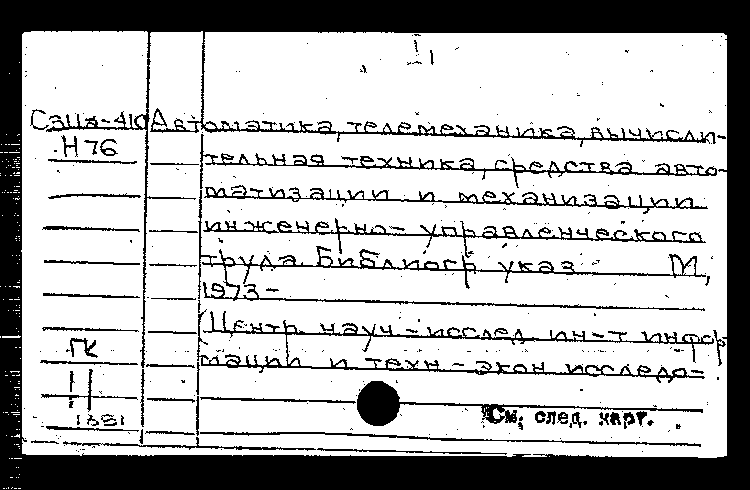 I
Сз11а-410 Автоматика, телемеханика, вычисли-
Н76 тельная техника, средства авто-
матизации и механизации
инженерно-управленческого
труда. Библиогр. указ. М,
1973-
(Центр. науч-исслед. ин-т инфор
ГК мации и техн-экон исследо-
II
1381
См. след. карт.